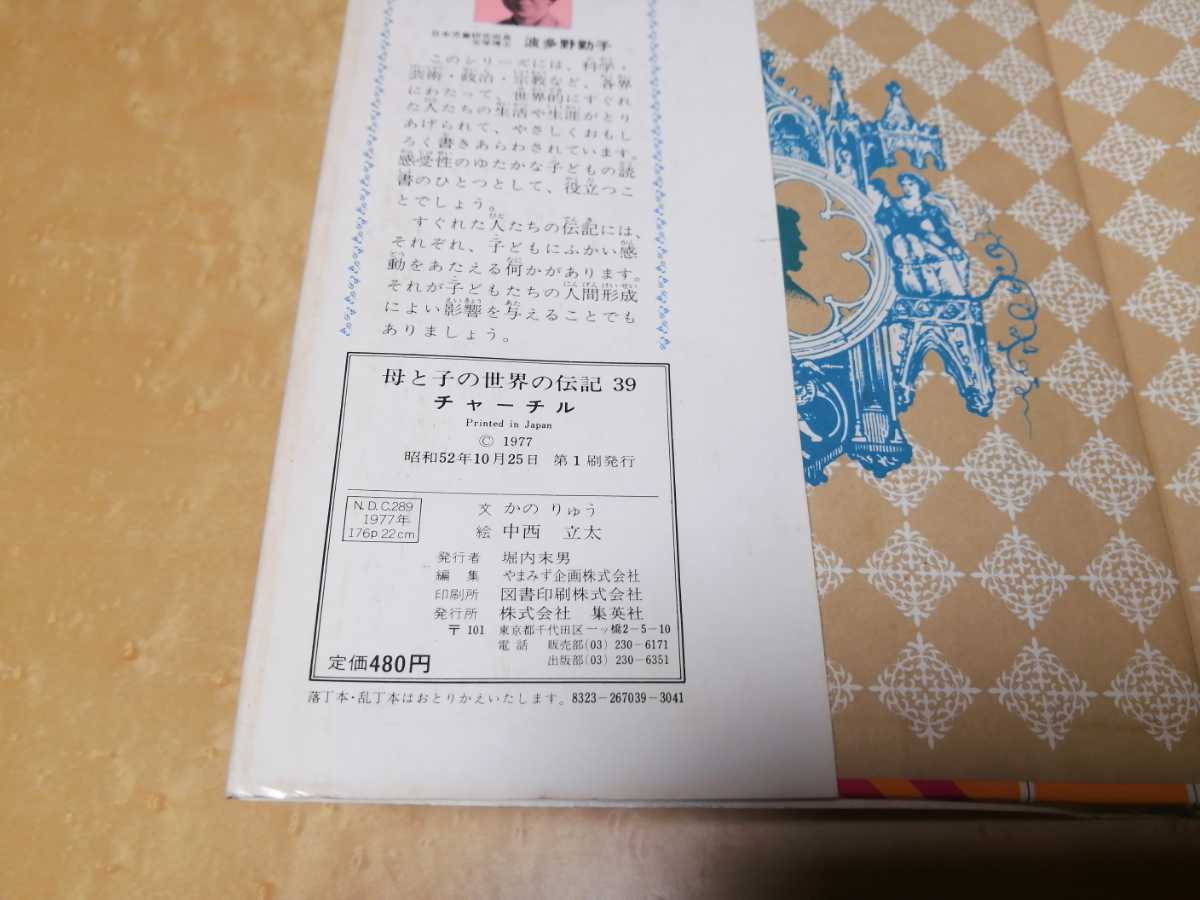 日本児童研究所長
文学博士 波多野勤子
このシリーズには、科学・
芸術・政治・宗教など、各界
にわたって、世界的にすぐれ
た人たちの生活や生涯がとり
あげられて、やさしくおもし
ろく書きあらわされています。
感受性のゆたかな子どもの読
書のひとつとして、役立つこ
とでしょう。
すぐれた人たちの伝記には、
それぞれ、子どもにふかい感
動をあたえる何かがあります。
それが子どもたちの人間形成
によい影響を与えることでも
ありましょう。
母と子の世界の伝記 39
チャーチル
Printed in Japan
© 1977
昭和52年10月25日 第1刷発行
N.D.C.289
1977年
176p 22cm
文 かの りゅう
絵 中西 立太
発行者 堀内末男
編集 やまみず企画株式会社
印刷所 図書印刷株式会社
発行所 株式会社 集英社
〒101 東京都千代田区一ッ橋2-5-10
電話 販売部(03) 230-6171
出版部(03) 230-6351
定価480円
落丁本・乱丁本はおとりかえいたします。8323-267039-3041